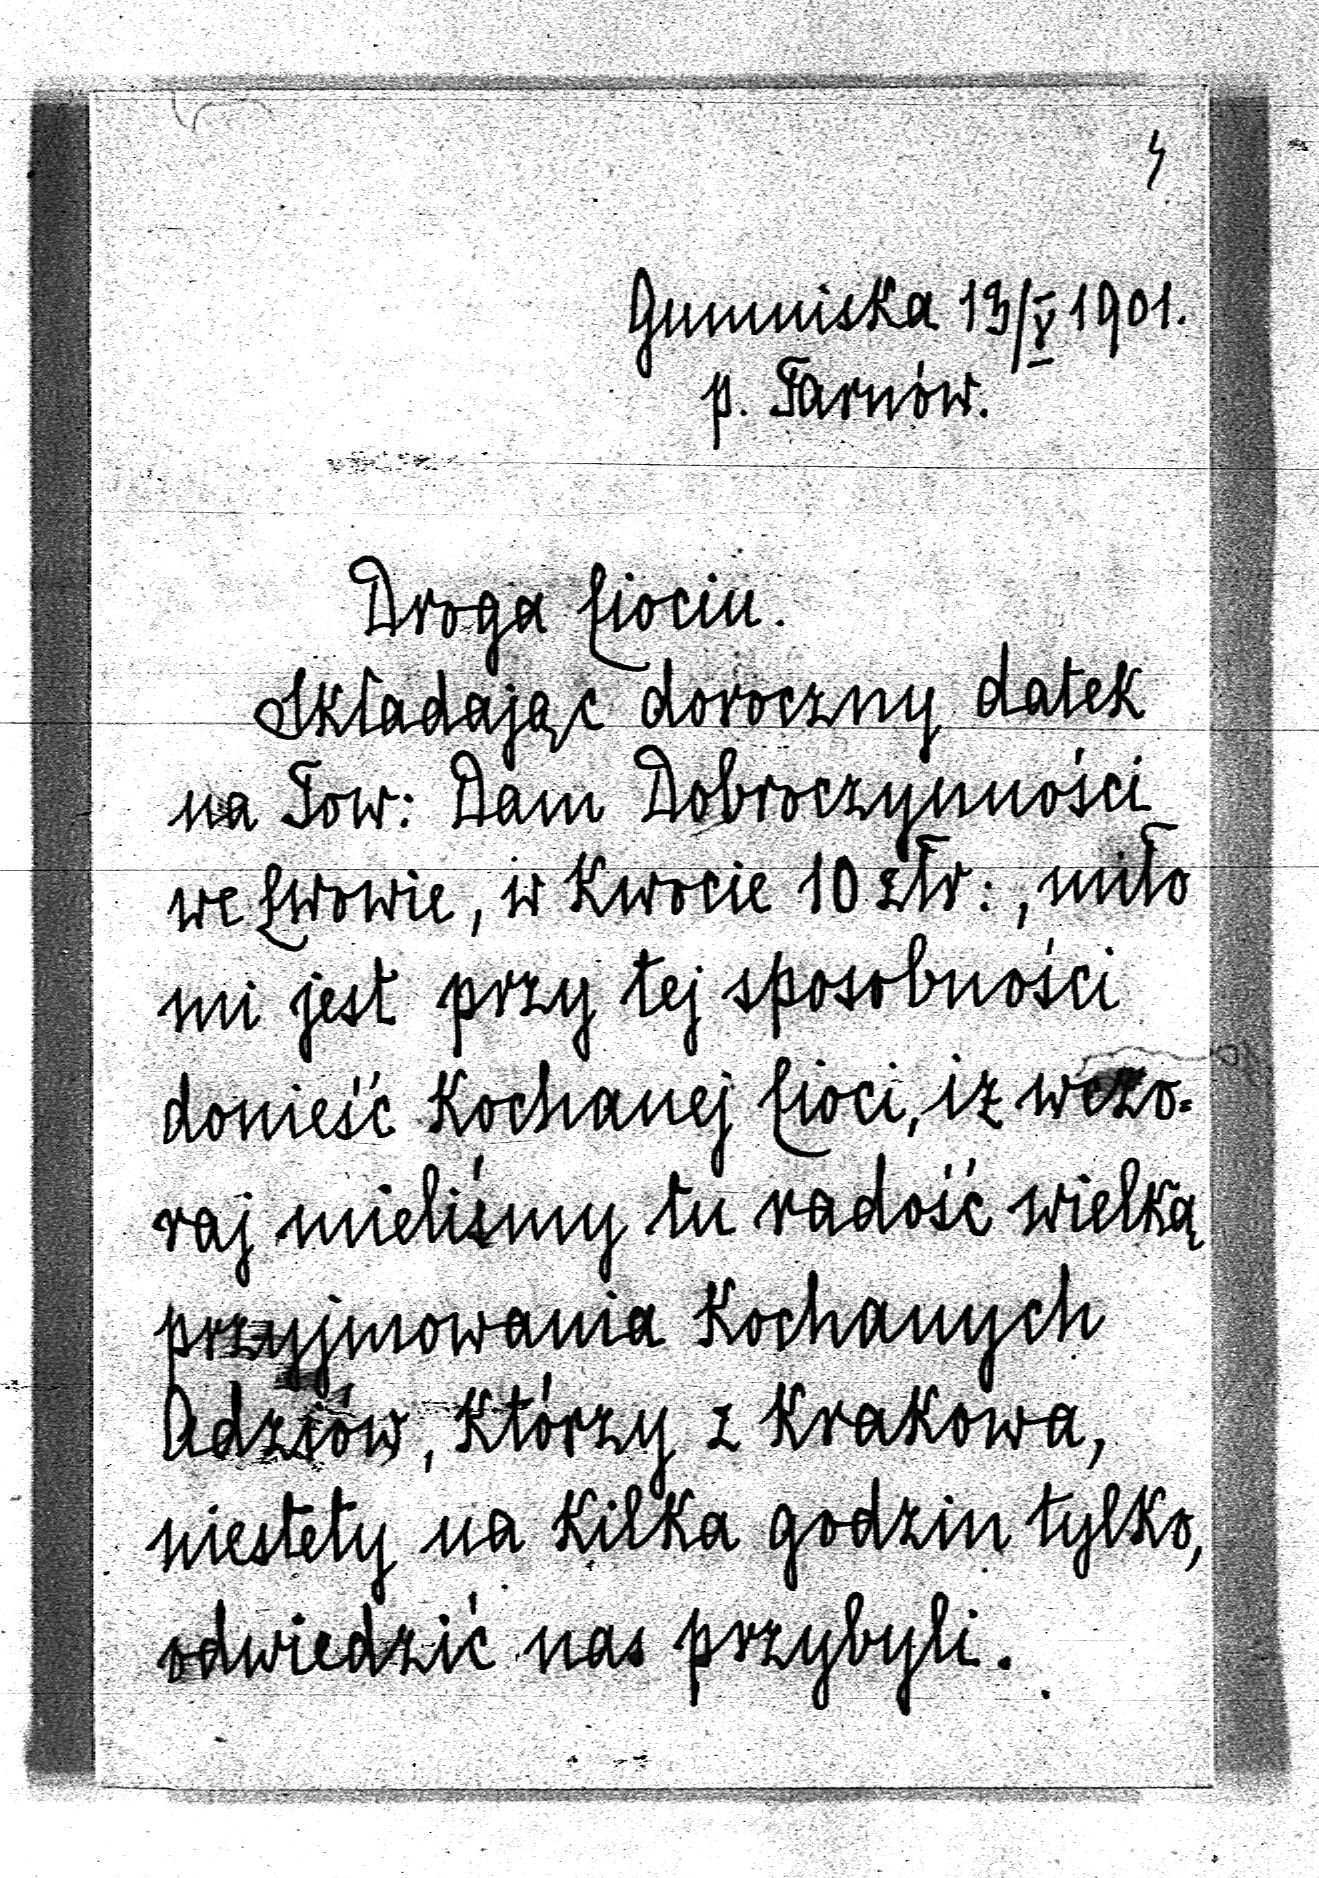 4
Gumniska 13/V 1901.
p. Tarnów.
Droga Ciociu.
Składając doroczny datek
na Tow: Dam Dobroczynności
we Lwowie, w kwocie 10 złr:, miło
mi jest przy tej sposobności
donieść Kochanej Cioci, iż wczo=
raj mieliśmy tu radość wielką
przyjmowania Kochanych
Adziów, którzy z Krakowa,
niestety na kilka godzin tylko,
odwiedzić nas przybyli.